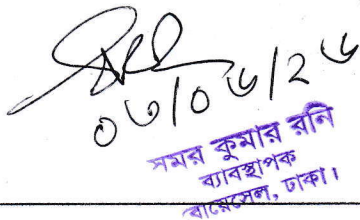 ০৩/০৬/২৬
সমর কুমার রনি
ব্যাবস্থাপক
বোয়েসেল, ঢাকা।